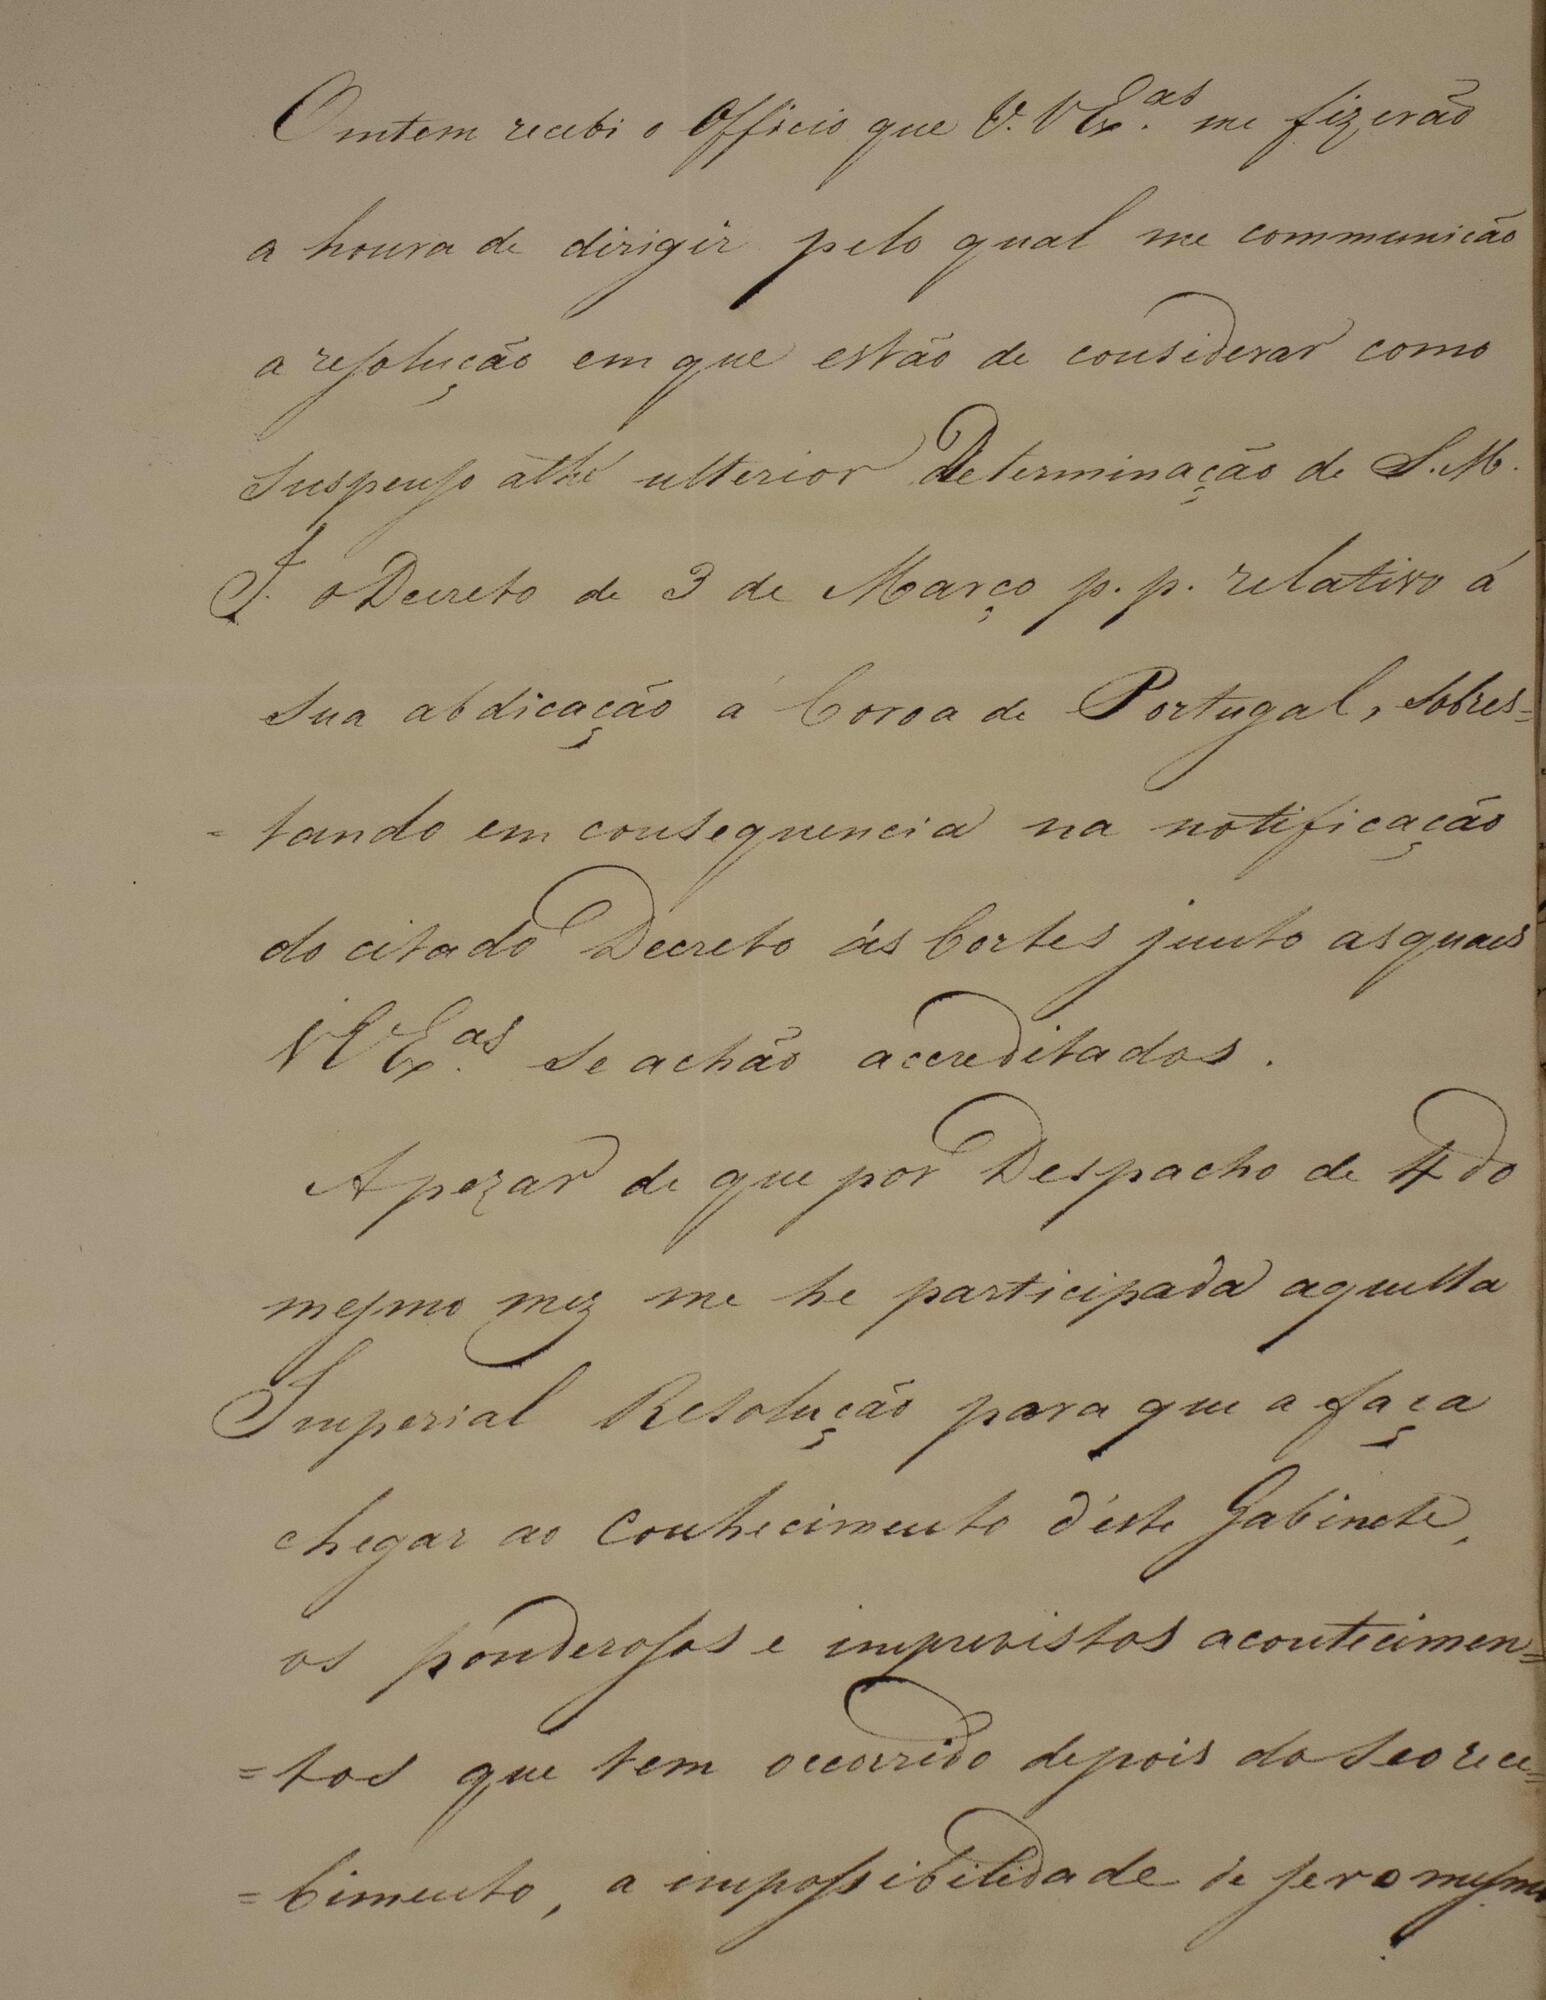 Omtem recebi o Officio que V. V Ex.as me fizerão
a honra de dirigir pelo qual me communicão
a resolução em que estão de considerar como
suspenso athé ulterior Determinação de S. M.
I. o Decreto de 3 de Março p. p. relativo á
sua abdicação á Coroa de Portugal, sobres=
= tando em consequencia na notificação
do citado Decreto ás Cortes junto as quaes
V V Ex.as se achão acreditados.
Apezar de que por Despacho de 4 do
mesmo mez me he participada aquella
Imperial Resolução para que a faça
chegar ao conhecimento d'este Gabinete,
os ponderosos e imprevistos acontecimen=
= tos que tem occorrido depois do seo rece=
= bimento, a impossibilidade de ser o mesmo